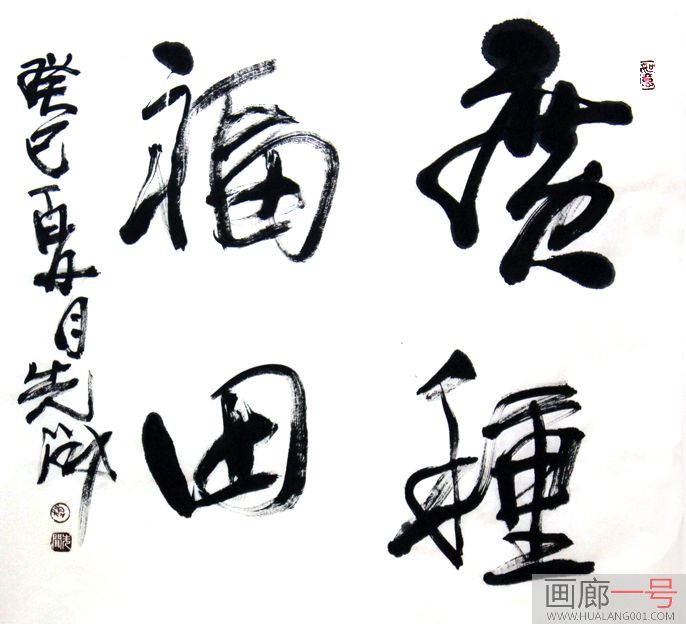 廣種
福田
癸巳夏月先成
画廊一号
WWW.HUALANG001.COM